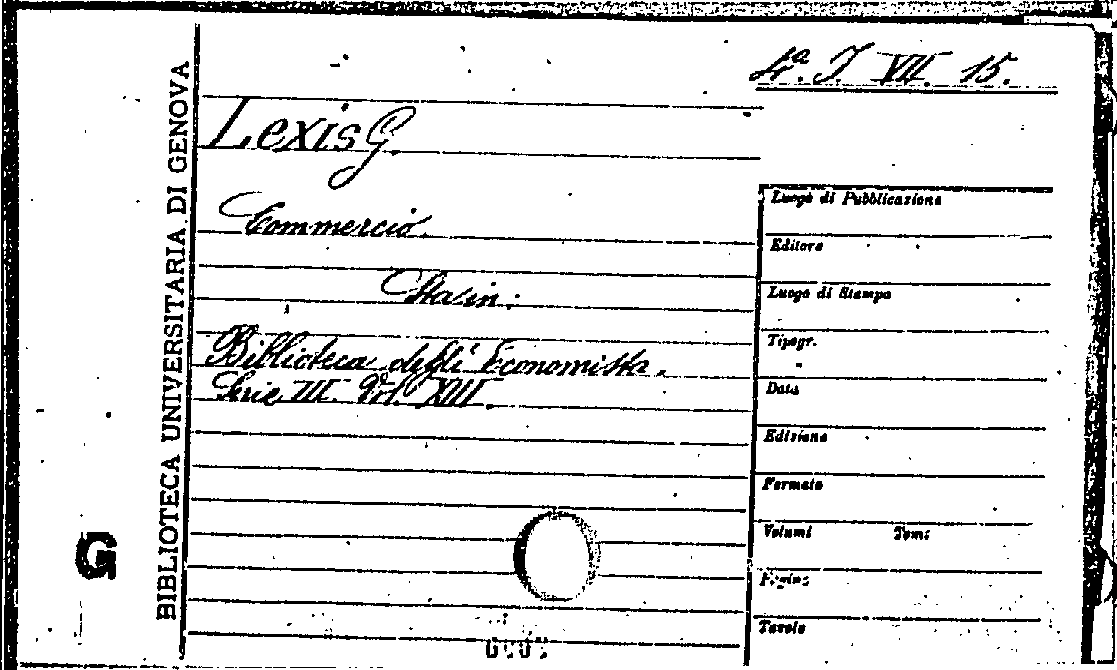 4ª. J. VII. 15.
Lexis G.
Commercio.
Sta in:
Biblioteca degli Economista.
Serie III. Vol. XIII.
BIBLIOTECA UNIVERSITARIA DI GENOVA
G
Luogo di Pubblicazione
Editore
Luogo di Stampa
Tipogr.
Data
Edizione
Formato
Volumi Tomi
Pagine
Tavole